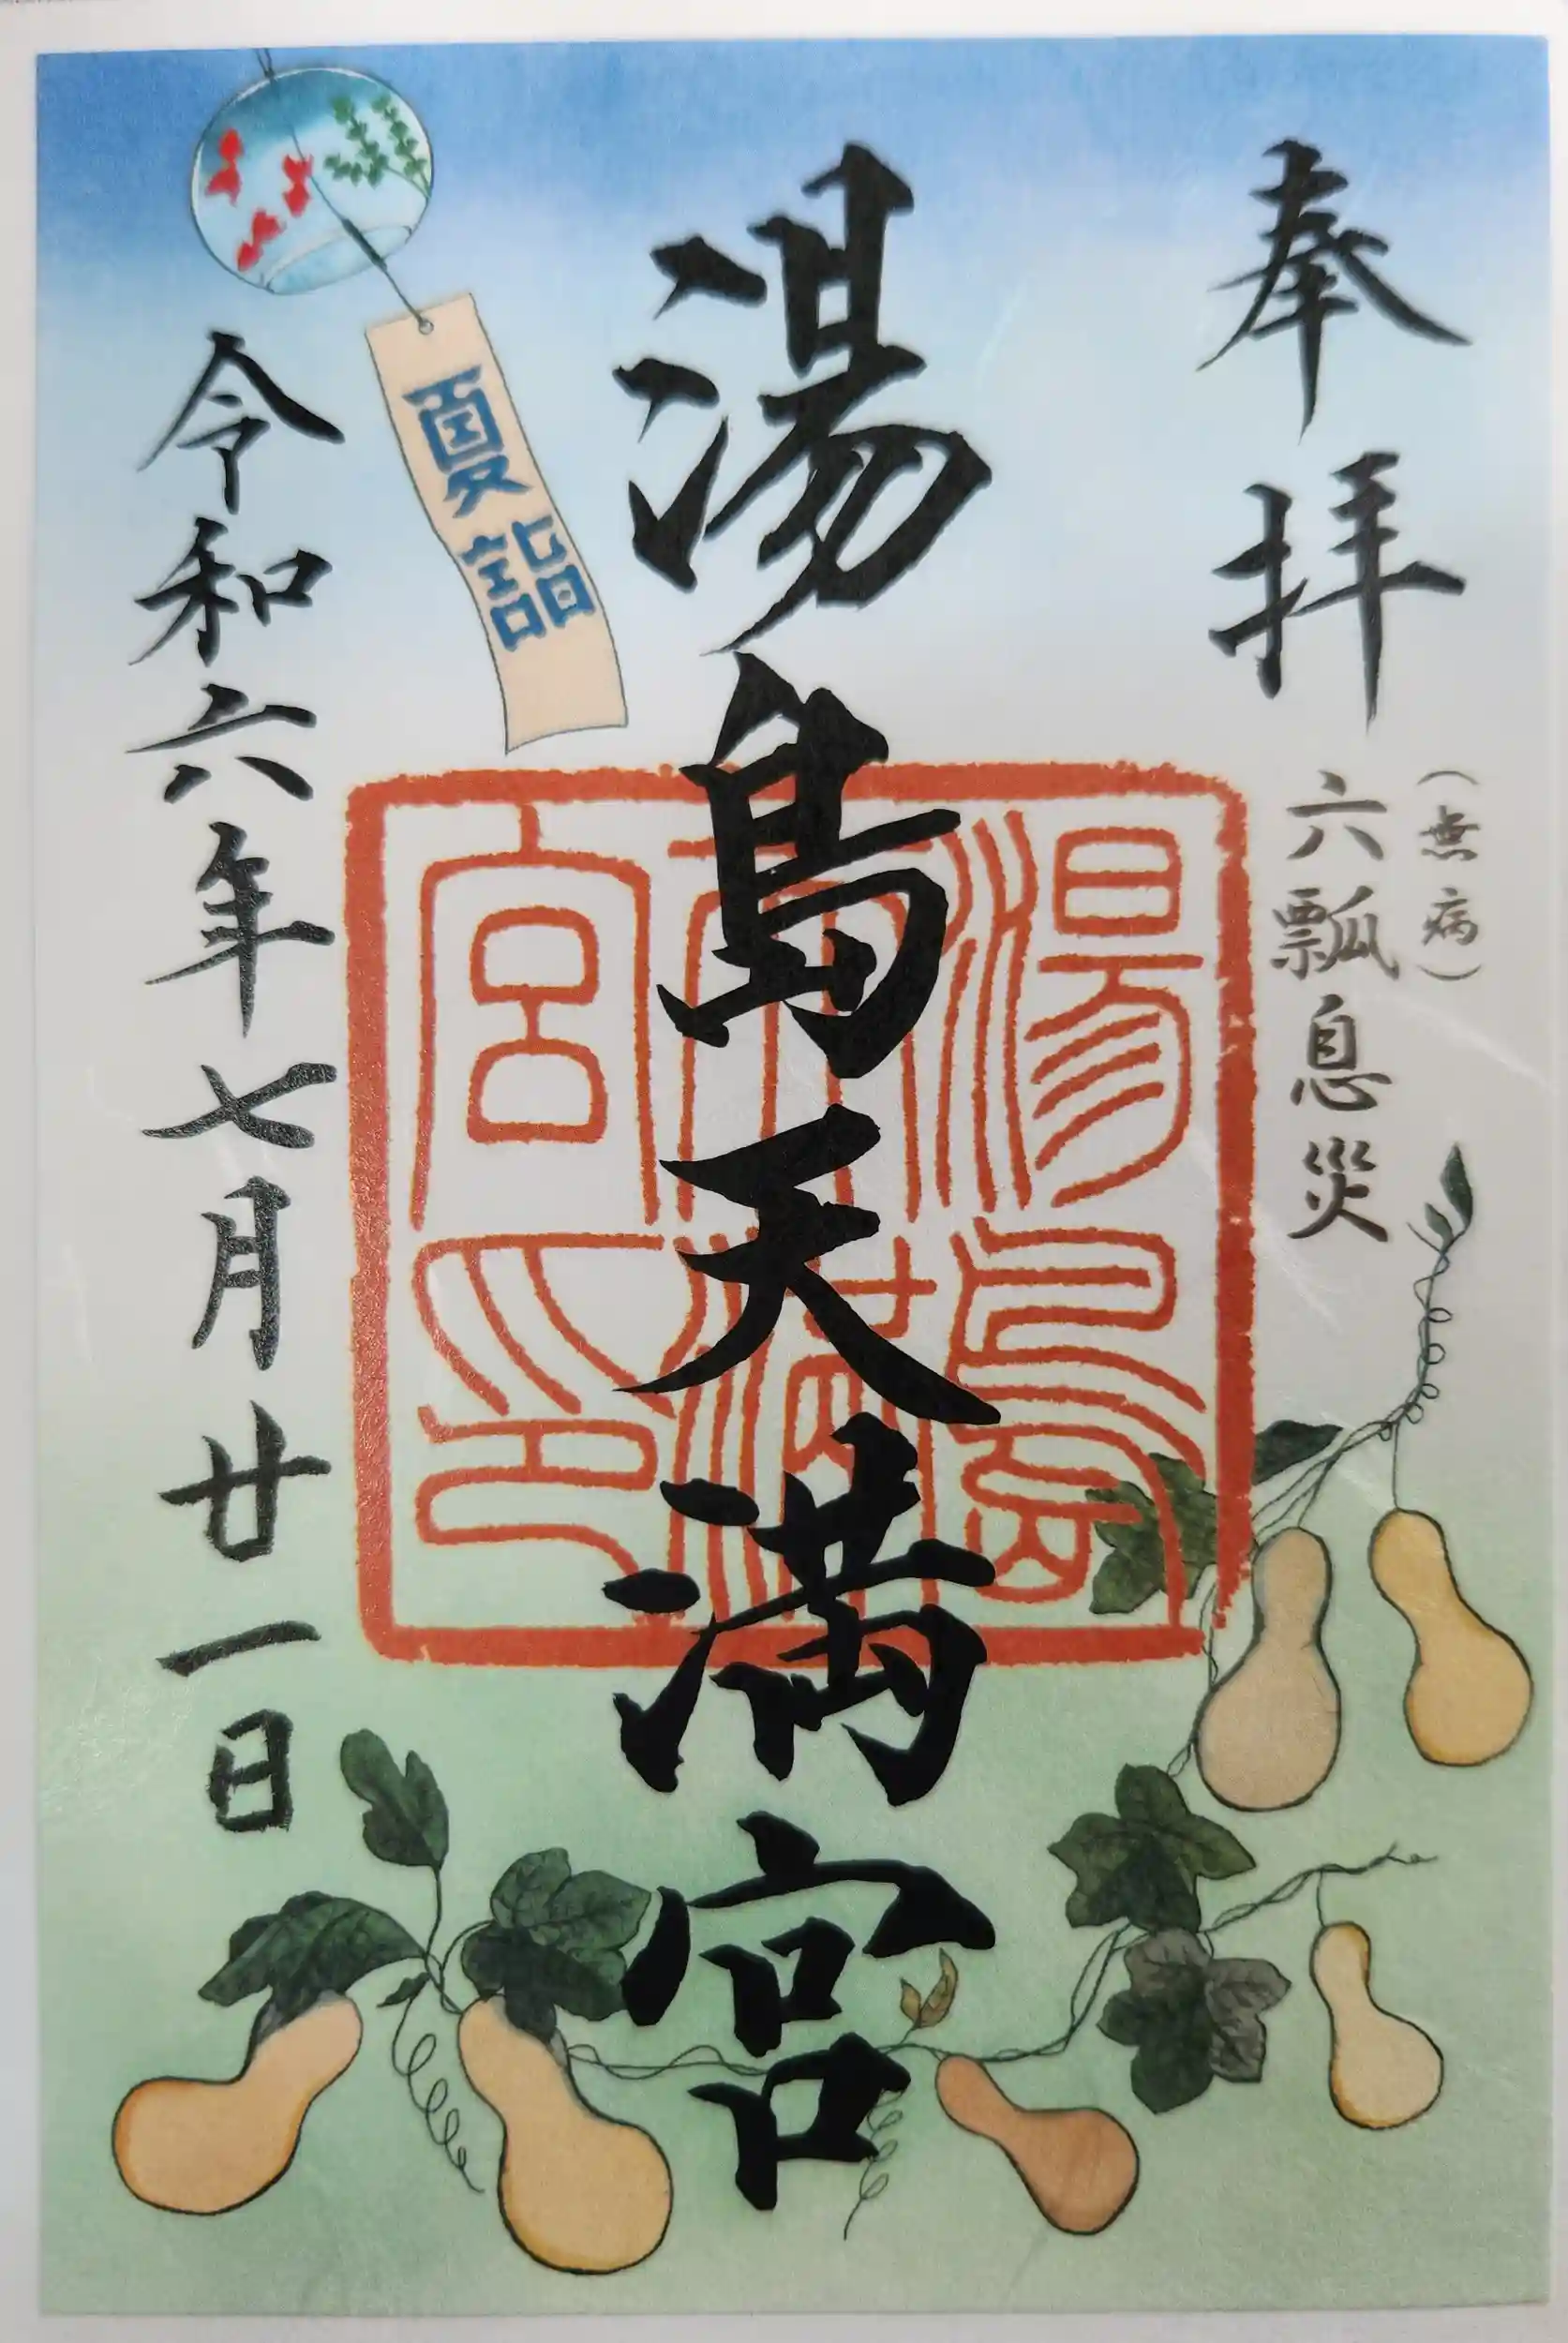 奉拝
(無病)
六瓢息災
湯島天満宮
湯島
天満
宮印
夏詣
令和六年七月廿一日